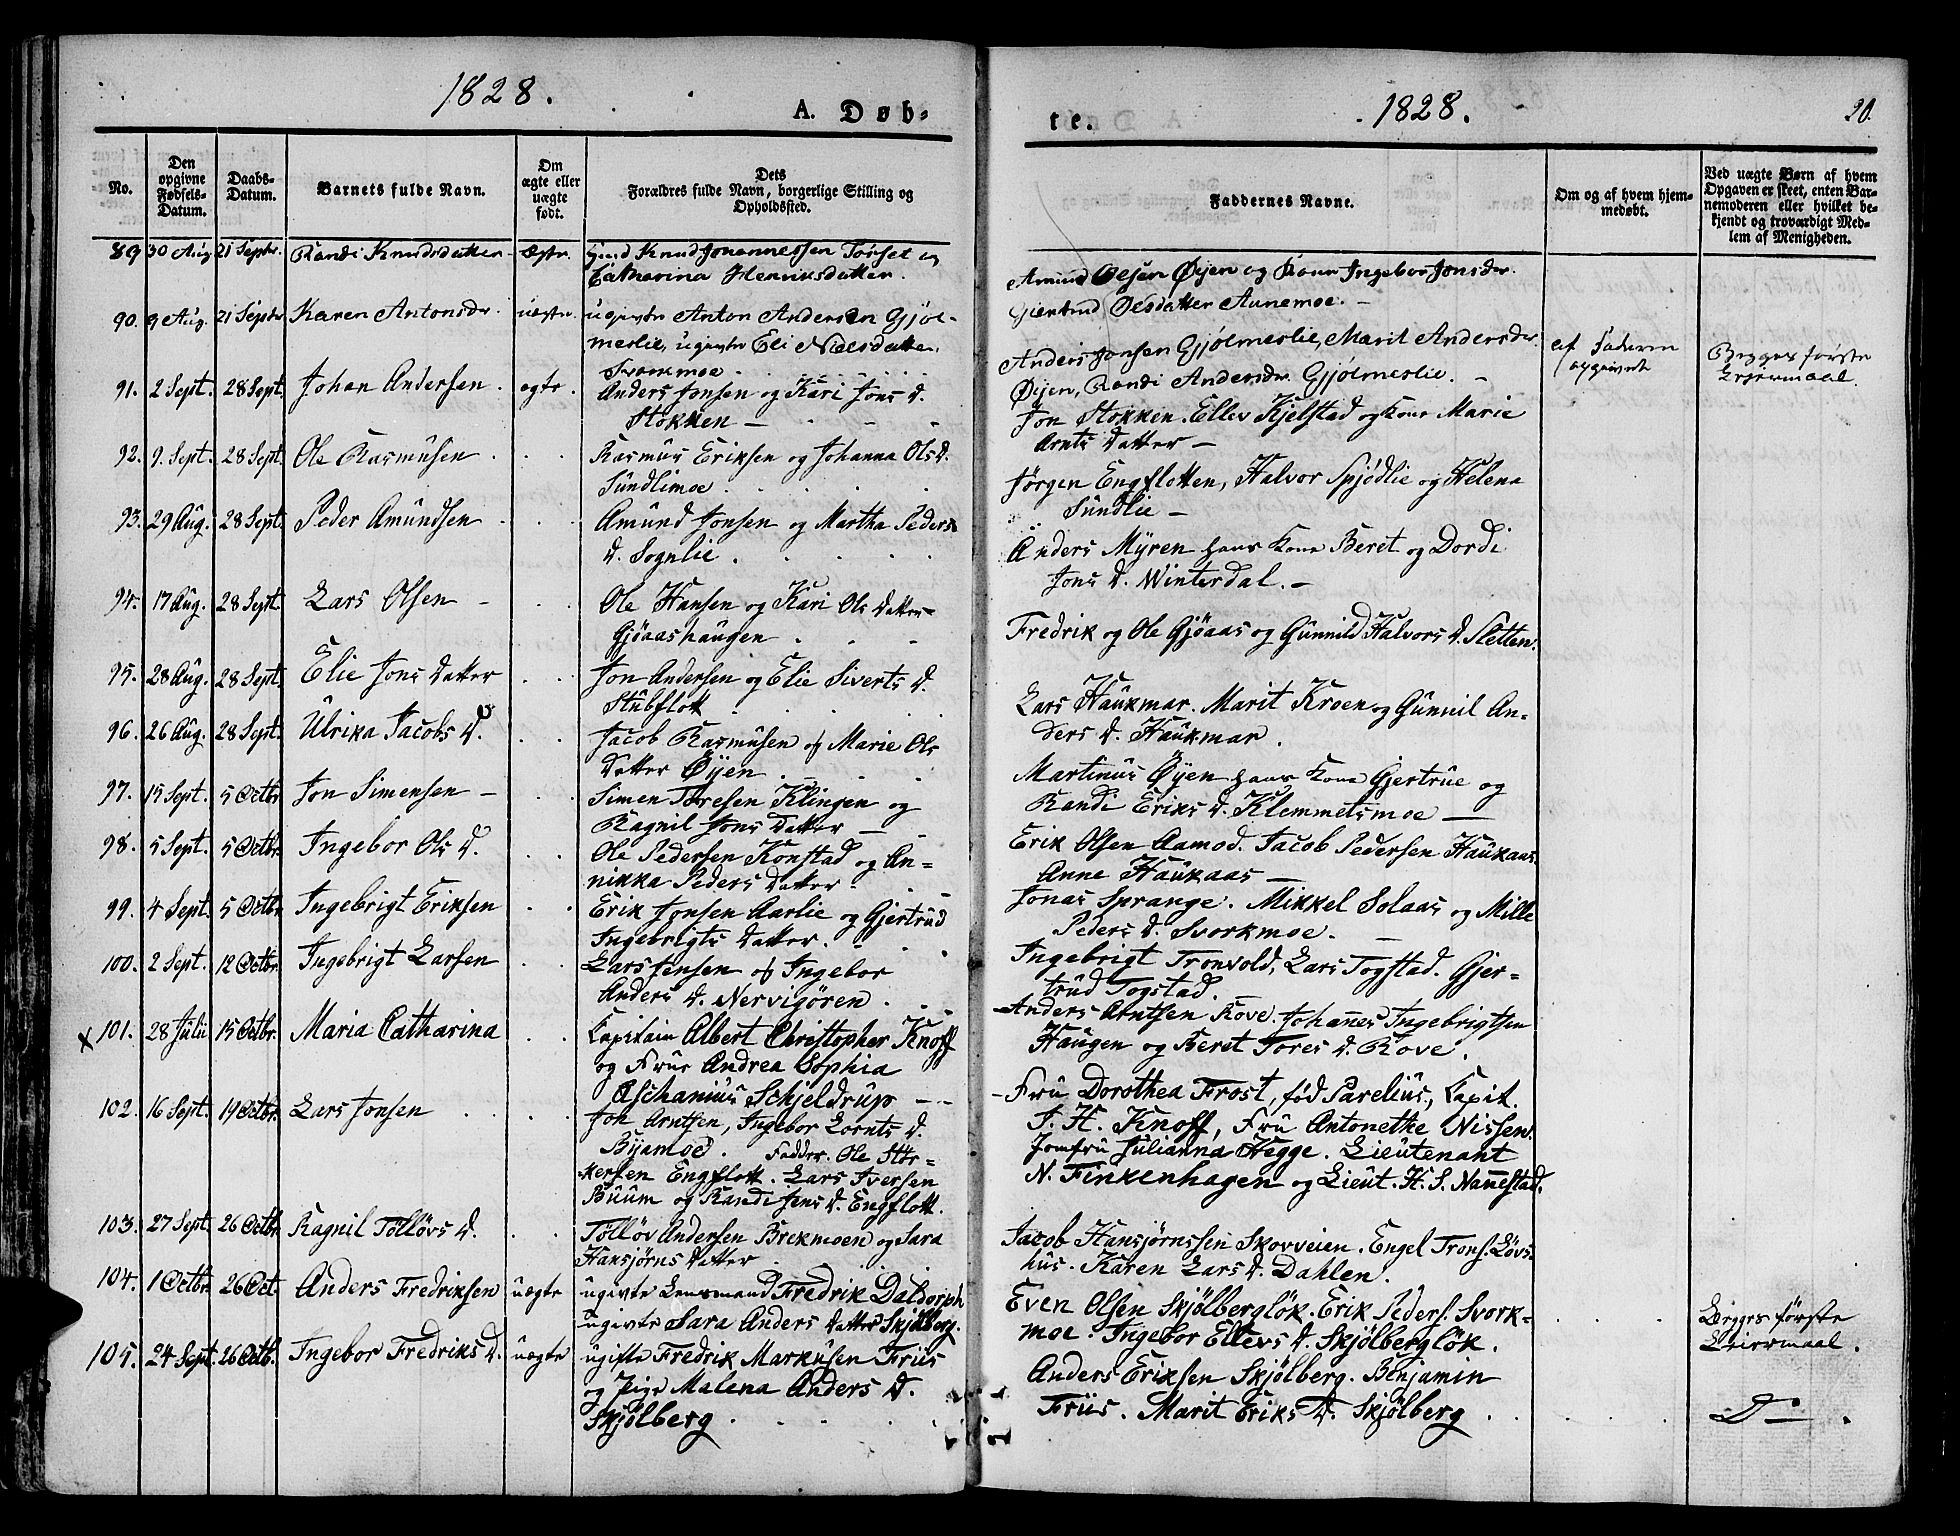 1828.
A. Døb-
No.
Den opgivne Fødsels-Datum.
Daabs-Datum.
Barnets fulde Navn.
Om ægte eller uægte født.
Dets Forældres fulde Navn, borgerlige Stilling og Opholdssted.
89 30 Aug 21 Septbr. Randi Knudsdatter ægte. Knud Johannessen Torset og
Catharina Henriksdatter.
90. 9 Aug. 21 Septbr Karen Antonsdr. uægte. ugivte Anton Andersen Gjøl-
meslie, ugivte Eli Nielsdatter.
Svorkmoe.
91. 2 Sept. 28 Sept. Johan Andersen. ægte. Anders Jonsen og Kari Jons D.
Stokken
92. 9. Sept. 28 Sept. Ole Rasmusen Rasmus Eriksen og Johanna Ols D.
Sundlimoe.
93. 29 Aug. 28 Sept. Peder Amundsen Amund Jonsen og Martha Peders
D. Sognlie.
94. 17 Aug. 28 Sept. Lars Olsen Ole Hansen og Kari Ols Datter
Gjøaashaugen
95. 28 Aug. 28 Sept. Elie Jons Datter Jon Andersen og Elie Siverts D.
Stubflott
96. 26 Aug. 28 Sept. Ulrika Jacobs D. Jacob Rasmusen og Marie Ols
Datter Øyen
97. 15 Sept. 5 Octbr. Jon Simensen Simen Toresen Klingen og
Ragnil Jons Datter
98. 5 Sept. 5 Octbr. Ingebor Ols D. Ole Pedersen Konstad og An-
nikka Peders Datter
99. 4 Sept. 5 Octbr Ingebrigt Eriksen Erik Jonsen Aarlie og Gjertrud
Ingebrigts Datter.
100. 2 Sept. 12 Octbr. Ingebrigt Larsen Lars Jensen og Ingebor
Anders D. Nervigören.
x 101. 28 Julii 15 Octbr. Maria Catharina Capitain Albert Christopher Knoff
og Frue Andrea Sophia
Aschanius Schjeldrup
102. 16 Sept. 19 Octbr. Lars Jonsen Jon Arntsen, Ingebor Lornts D.
Byamoe. Fadder. Ole Stör-
kersen Engflott. Lars Iversen
Buum og Randi Jens D. Engflott.
103. 27 Sept. 26 Octbr Ragnil Tölløvs D. Tölløv Andersen Brekmoen og Sara
Hansjørns Datter
104. 1 Octbr. 26 Oct. Anders Fredriksen uægte ugivte Lensmand Fredrik Daldorph
ugivte Sara Anders Datter Skjølberg.
105. 24 Sept. 26 Octb. Ingebor Fredriks D. uægte ugifte Fredrik Markusen Friis
og Pige Malena Anders D.
Skjølberg
te.
1828.
20.
Faddernes Navne.
Om og af hvem hjem-
medøbt.
Ved uægte Børn af hvem
Opgaven er skeet, enten Bar-
nemoderen eller hvilket be-
kjendt og troværdigt Med-
lem af Menigheden.
Amund Olsen Øyen og Kone Ingebor Jonsdr.
Giertrud Olsdatter Aunemoe.
Anders Jonsen Gjølmeslie, Marit Andersdr.
Øyen, Randi Andersdr. Gjølmeslie.
af Faderen
opgivet
Begges første
Leiermaal.
Jon Stokken. Ellev Kjelstad og Kone Marie
Arnts Datter
Jørgen Engflotten, Halvor Spjødlie og Helena
Sundlie
Anders Myren hans Kone Beret og Dordi
Jons D. Winterdal.
Fredrik og Ole Gjøaas og Gunnild Halvors D. Sletten.
Lars Haukmar. Marit Kroen og Gunnil An-
ders D. Haukmar.
Martinus Øyen hans Kone Gjertrue og
Randi Eriks D. Klemmetsmoe
Erik Olsen Aamod. Jacob Pedersen Haukaas.
Anne Haukaas
Jonas Sprange. Mikkel Solaas og Mille
Peders D. Svorkmoe.
Ingebrigt Tronvold, Lars Togstad. Gjer-
trud Togstad.
Anders Arntsen Rove. Johannes Ingebrigtsen
Haugen og Beret Tores D. Rove.
Fru Dorothea Frost, fød Parelius, Capit.
J. H. Knoff, Fru Antonethe Nissen.
Jomfru Julianna Hegge. Lieutenant
N. Finkenhagen og Lieut. H. S. Nannestad.
Jacob Hansjørnssen Skovveien. Engel Trons. Løvs-
hus. Karen Lars D. Dahlen.
Even Olsen Skjølbergløk. Erik Peders. Svork-
moe. Ingebor Ellevs D. Skjølbergløk.
Begges første
Leiermaal.
Anders Eriksen Skjølberg. Benjamin
Friis. Marit Eriks D. Skjølberg
D